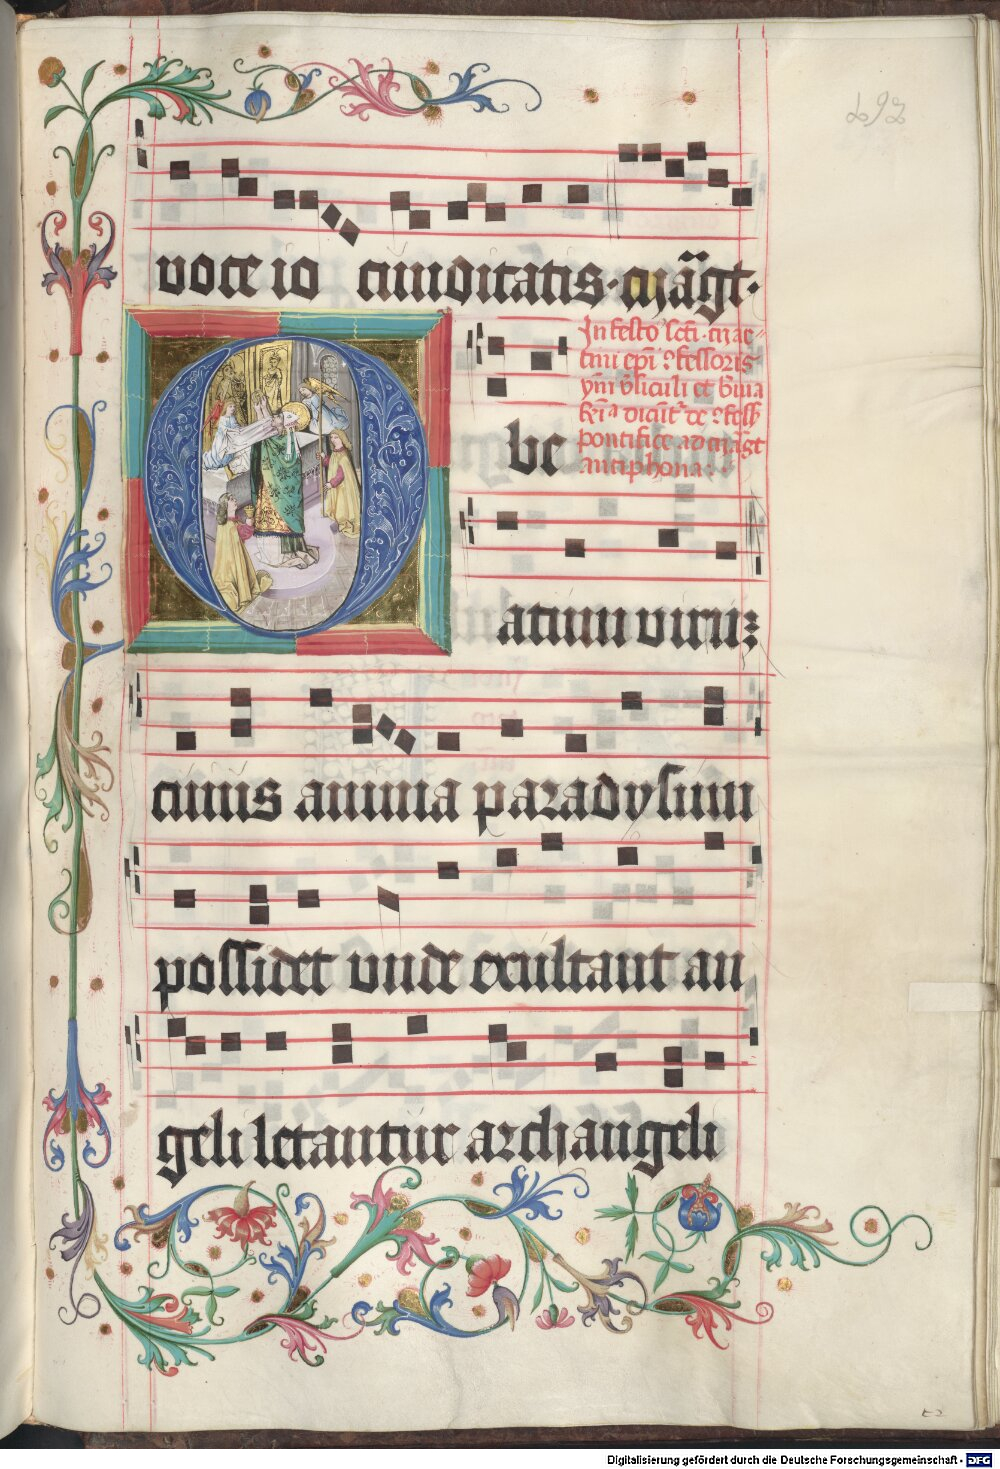 voce io cunditatis · Mag̃t ·
In festo sc̃ti · Mar⸗
tini ep̃i ⁊ fessoris
ym̃ v̾siculi et
dicūt̾ de ⁊fess̾
pontifice ad mag̃t
antiphona :
O be
atum virū:
cuius anima paradysum
possidet vnde exultant an
geli letantur archangeli
Digitalisierung gefördert durch die Deutsche Forschungsgemeinschaft - DFG